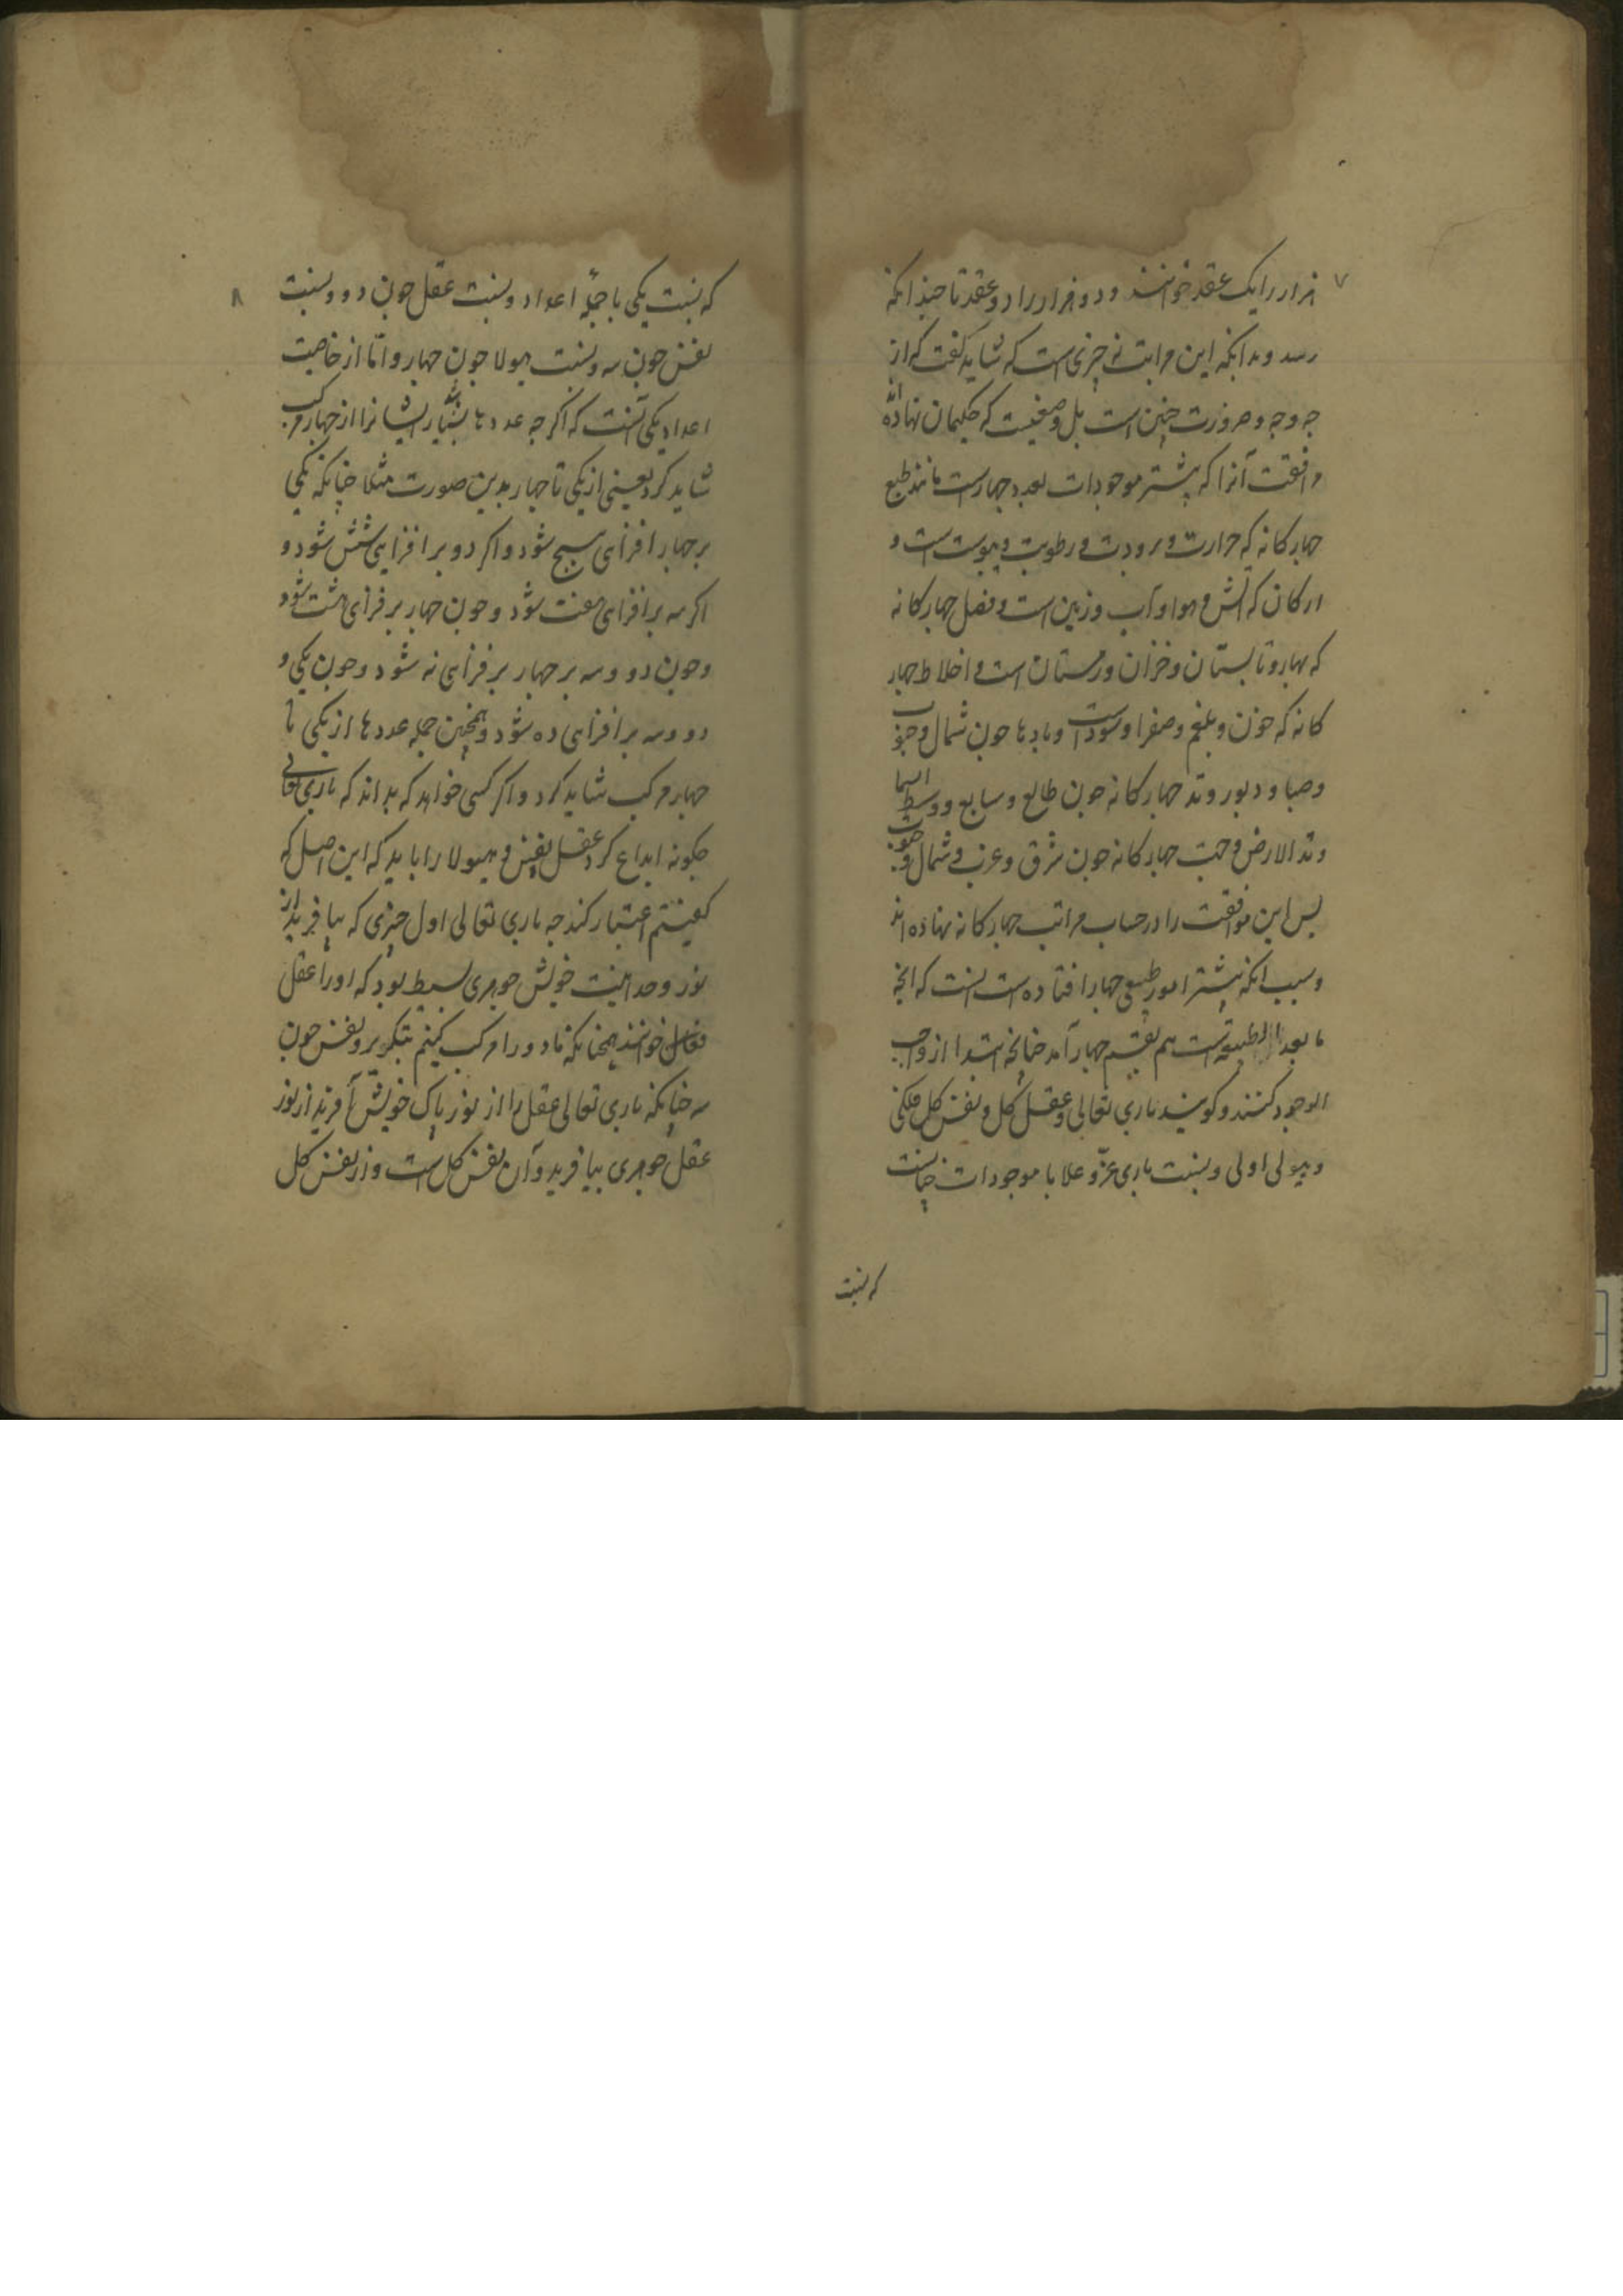 ۷
هزار را یک عقد خوانند و دو هزار را دو عقد تا چندانکه
رسد و بدانکه این مراتب نه چیزی است که شاید گفت که از
جه وجه و ضرورت چنین است بل وضعیست که حکیمان نهاده‌اند
موافقت آنرا که بیشتر موجودات بعدد چهارست مانند طبع
چهارکانه که حرارت و برودت و رطوبت و یبوست است و
ارکان که آتش و هوا و آب و زمین است و فصل چهارکانه
که بهار و تابستان و خزان و زمستان است و اخلاط چهار
کانه که خون و بلغم و صفرا و سوداست و بادها جون شمال و جنوب
و صبا و دبور و وتد چهارکانه جون طالع و سابع و وسط السما
وتد الارض و جهت چهارکانه جون شرق و غرب و شمال و جنوب
پس این موافقت را در حساب مراتب چهارکانه نهاده‌اند
و سبب انکه بیشتر امور طبیعی چهار افتاده است انست که انچه
ما بعد الطبیعة است هم بقسم چهار آمد جنانچه ابتدا از واجب
الوجود کنند و کویند باری تعالی و عقل کل و نفس کل فلکی
و هیولی اولی و نسبت باری عزّ و علا با موجودات جنانست
که نسبت
۸
که نسبت یکی با جمله اعداد و نسبت عقل جون دو و نسبت
نفس جون سه و نسبت هیولا جون چهار و امّا از خاصیت
اعداد یکی آنست که اکر جه عددها بسیار باشد ایشانرا از چهار مرکب
شاید کرد یعنی از یکی تا چهار بدین صورت مثلا جنانکه یکی
بر چهار افزای پنج شود و اکر دو بر افزایی شش شود و
اکر سه بر افزای هفت شود و جون چهار بر فزای هشت شود
و جون دو و سه بر چهار بر فزای نه شود و جون یکی و
دو و سه بر افزای ده شود و همچنین جمله عددها از یکی تا
چهار مرکب شاید کرد و اکر کسی خواهد که بداند که باری تعالی
جکونه ابداع کرد عقل و نفس و هیولا را باید که این اصل که
کفتیم اعتبار کند جه باری تعالی اول چیزی که بیافرید از
نور وحدانیت خویش جوهری بسیط بود که او را عقل
فعال خوانند همچنانکه ما دو را مرکب کنیم بتکریر و نفس جون
سه جنانکه باری تعالی عقل را از نور پاک خویش آفرید از نور
عقل جوهری بیافرید و آن نفس کل است و از نفس کل